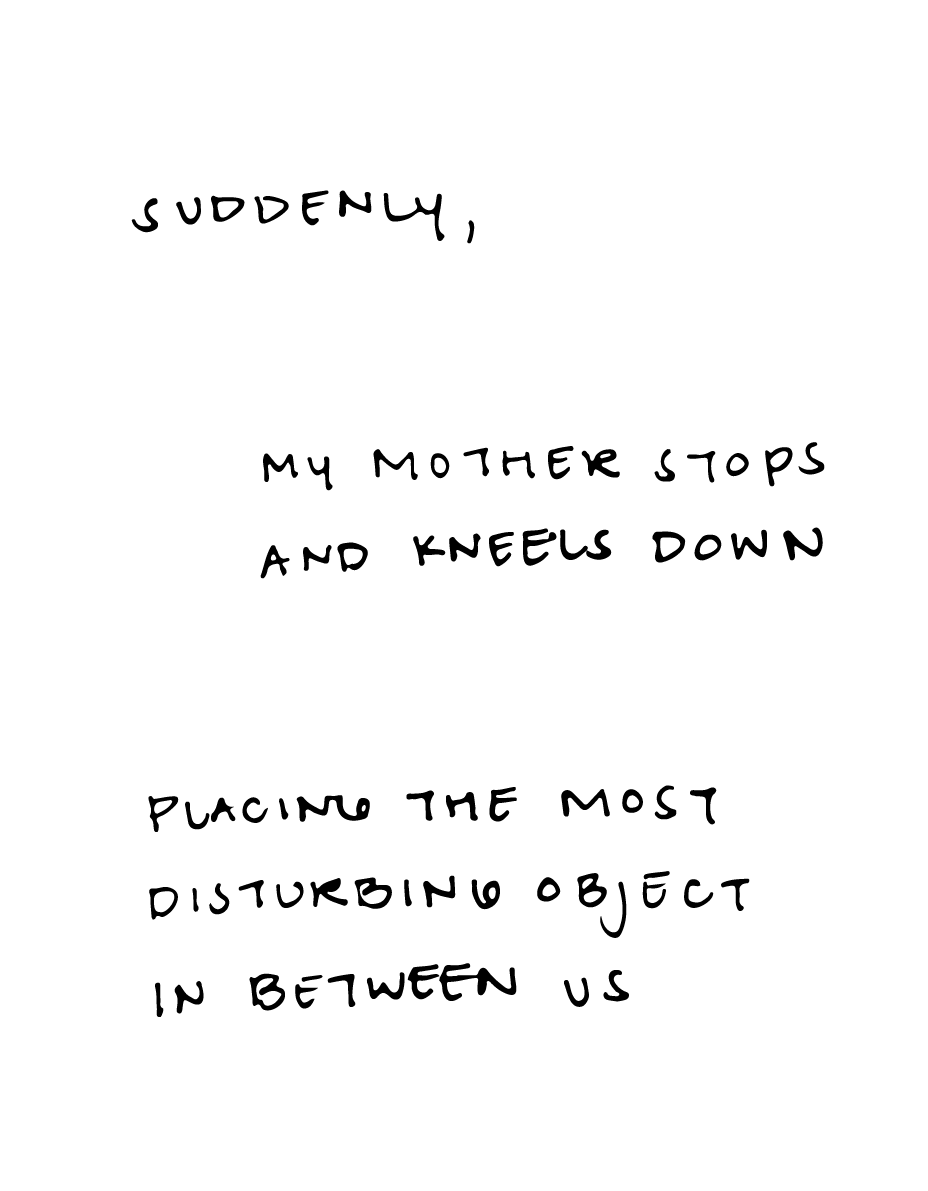 SUDDENLY,
MY MOTHER STOPS
AND KNEELS DOWN
PLACING THE MOST
DISTURBING OBJECT
IN BETWEEN US